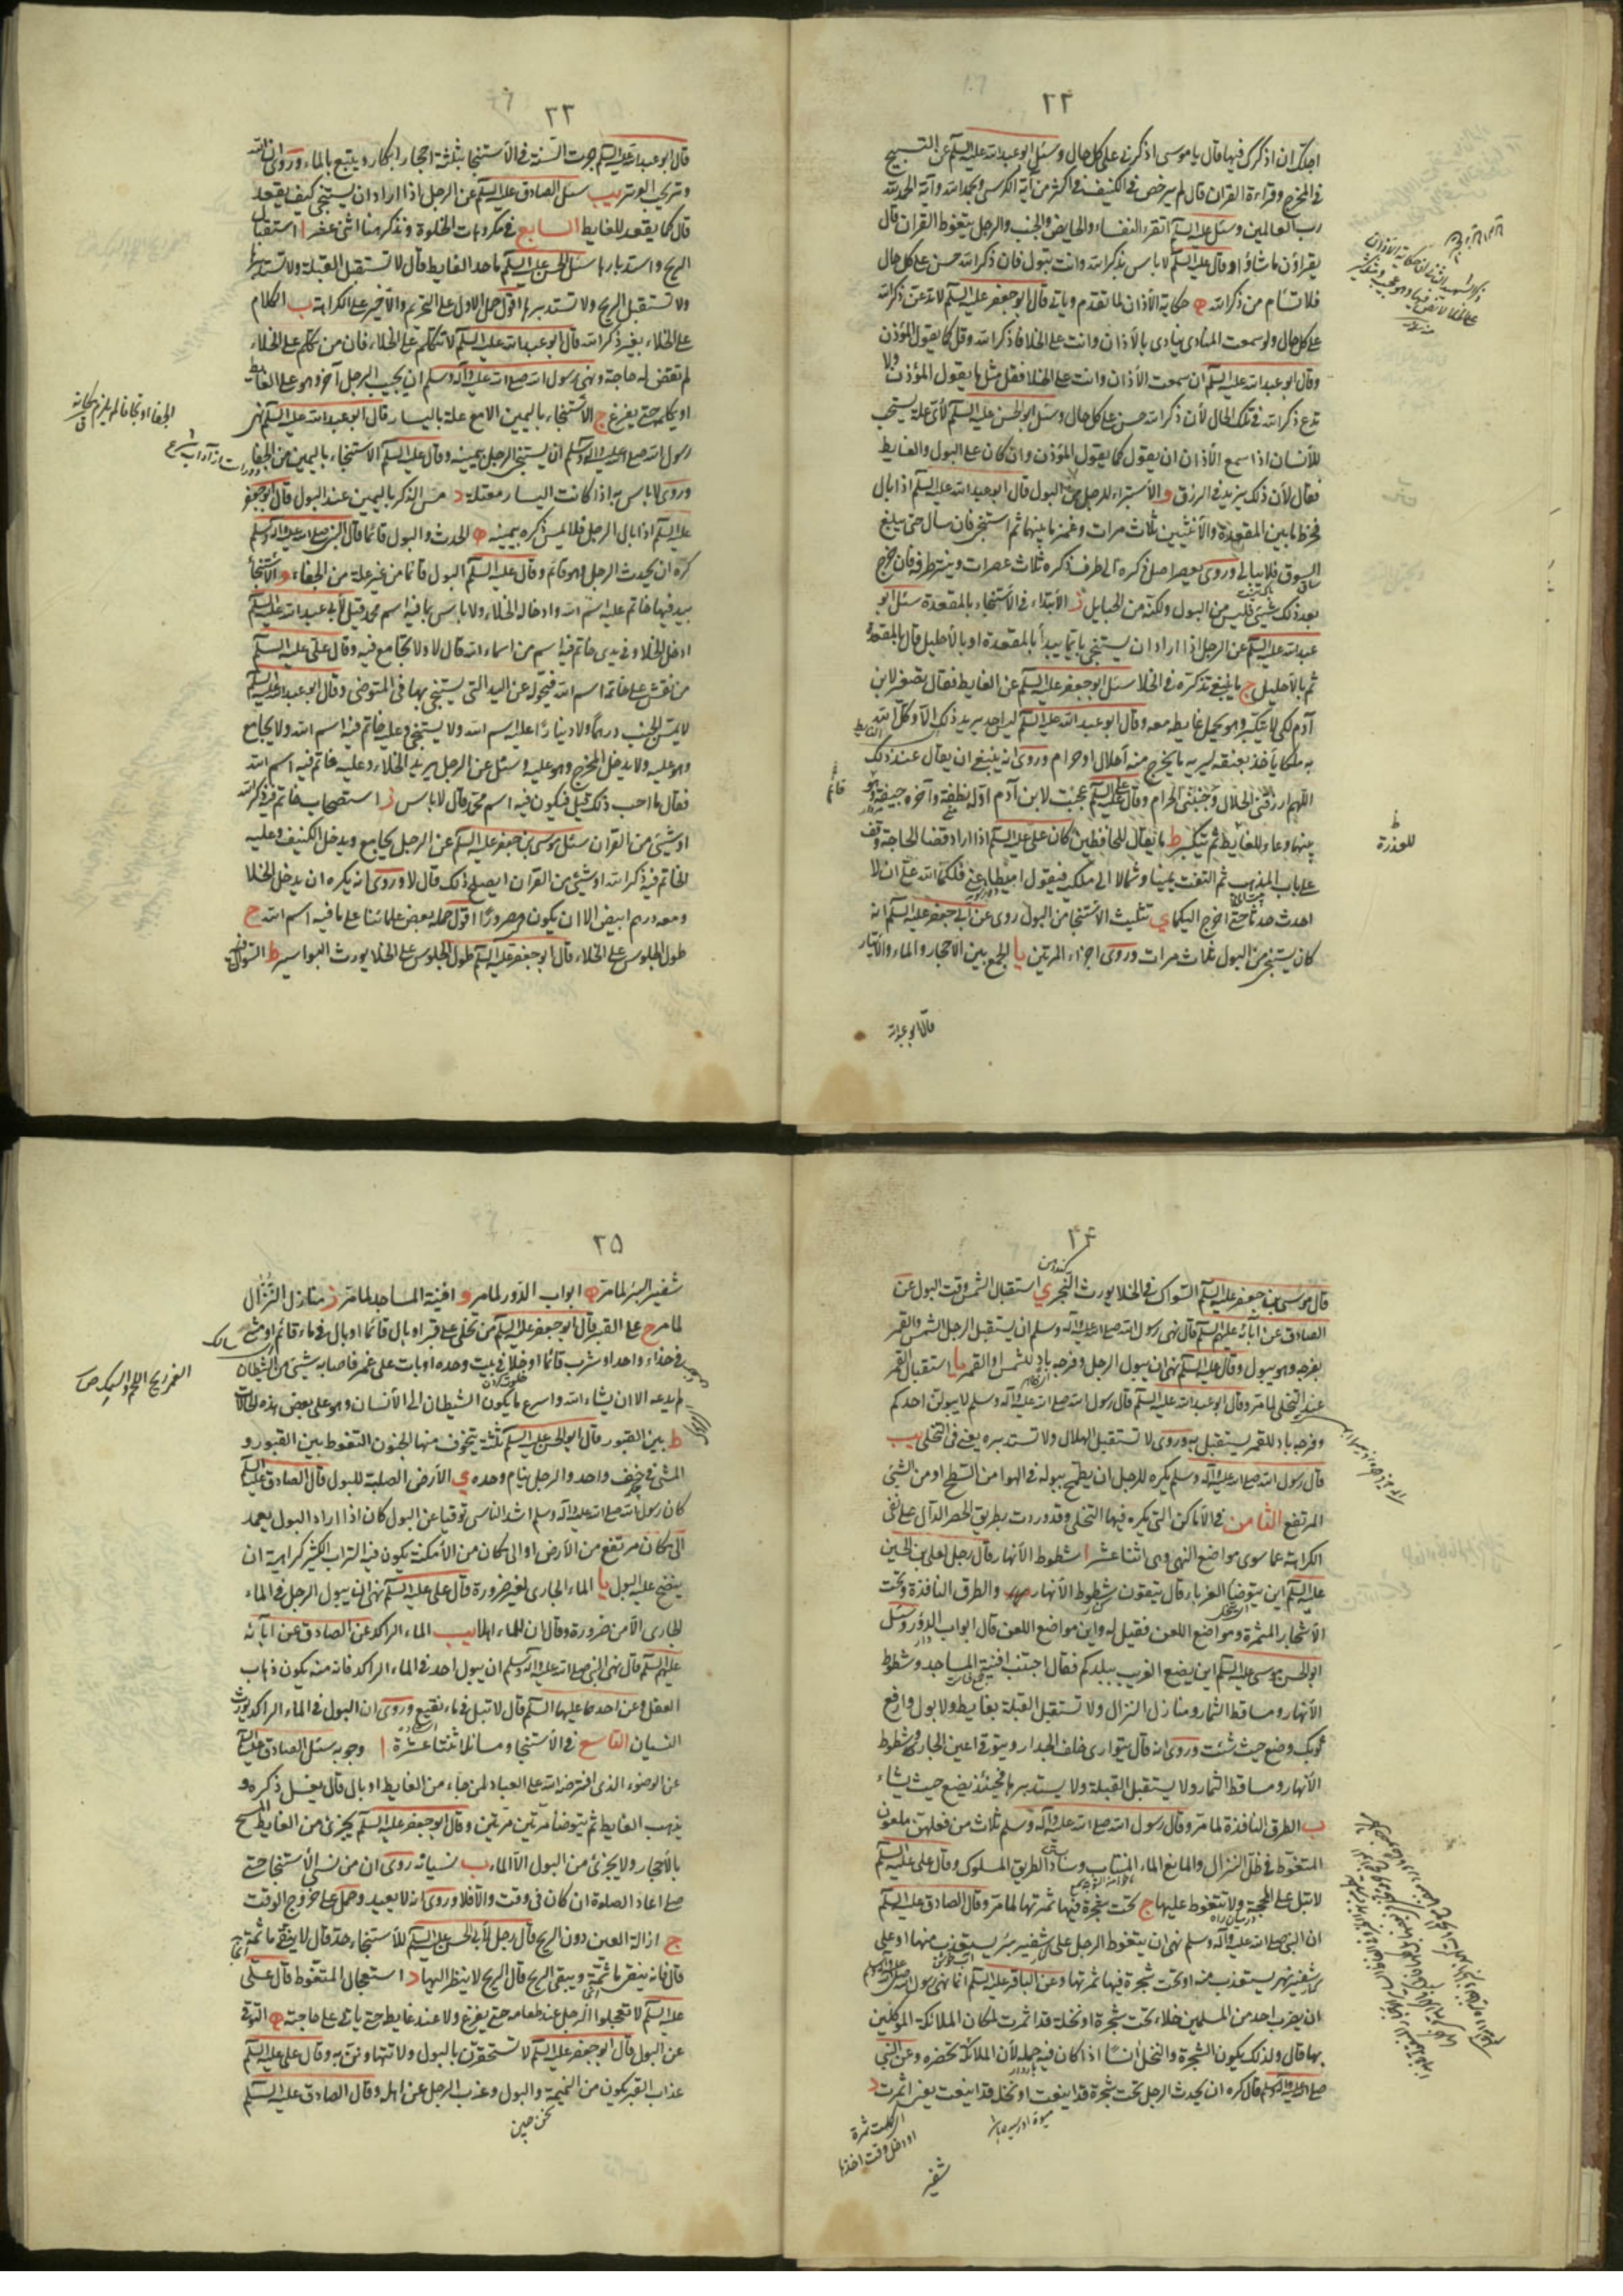 ٢٢
اجلك ان اذكرك فيها قال يا موسى اذكرنى على كل حال وسئل ابو عبد الله عليه السلم عن التسبيح
فى المخرج وقراءة القران قال لم يرخص فى الكنيف فى اكثر من آية الكرسى ويحمد الله وآية الحمد لله
رب العالمين وسئل عليه السلم اتقرء النفساء والحايض والجنب والرجل يتغوط القران قال
يقراؤن ما شاؤا وقال عليه السلم لا باس بذكر الله وانت تبول فان ذكر الله حسن على كل حال
فلا تسأم من ذكر الله ه حكاية الأذان لما تقدم وياتى قال ابو جعفر عليه السلم لا تدعن ذكر الله
على كل حال ولو سمعت المنادى ينادى بالأذان وانت على الخلا فاذكر الله وقل كما يقول المؤذن
وقال ابو عبد الله عليه السلم ان سمعت الأذان وانت على الخلا فقل مثل ما يقول المؤذن ولا
تدع ذكر الله فى تلك الحال لأن ذكر الله حسن على كل حال وسئل ابو الحسن عليه السلم لأى علة يستحب
للأنسان اذا سمع الأذان ان يقول كما يقول المؤذن وان كان على البول والغايط
فقال لأن ذلك يزيد فى الرزق و الأستبراء للرجل من البول قال ابو عبد الله عليه السلم اذا بال
فخرط ما بين المقعدة والأنثيين ثلاث مرات وغمز ما بينهما ثم استنجى فان سال حتى يبلغ
السوق فلا يبالى وروى يعصر اصل ذكره الى طرف ذكره ثلاث عصرات وينتر طرفه فان خرج
بعد ذلك شىء فليس من البول ولكنه من الحبايل ز الأبتداء فى الأستنجاء بالمقعدة سئل ابو
عبد الله عليه السلم عن الرجل اذا اراد ان يستنجى بايما يبدأ بالمقعدة او بالأحليل قال بالمقعدة
ثم بالأحليل ح ما ينبغى تذكره فى الخلا سئل ابو جعفر عليه السلم عن الغايط فقال تصغير لابن
آدم لكى لا يتكبر وهو يحمل غايطه معه وقال ابو عبد الله عليه السلم ليس احد يريد ذلك الا وكل الله
به ملكا يأخذ بعنقه ليريه ما يخرج منه أحلال او حرام وروى انه ينبغى ان يقال عند ذلك
اللهم ارزقنى الحلال وجنبنى الحرام وقال على عليه السلم عجبت لابن آدم اوله نطفة وآخره جيفة وهو
بينهما وعاء للغايط ثم يتكبر ط ما يقال للحافظين كان على عليه السلم اذا اراد قضا الحاجة وقف
على باب المذهب ثم التفت يمينا وشمالا الى ملكيه فيقول اميطا عنى فلكما الله على ان لا
احدث حدثا حتى اخرج اليكما ى تثليث الأستنجا من البول روى عن ابى جعفر عليه السلم انه
كان يستنجى من البول ثلاث مرات وروى اجزاء المرتين يا الجمع بين الأحجار والماء والأيتار
قال ابو عبد الله
قائم
للعذرة
٢٣
قال ابو عبد الله عليه السلم جرت السنة فى الأستنجا بثلثة احجار ابكار ويتبع بالماء وروى ان الله
وتر يحب الوتر يب سئل الصادق عليه السلم عن الرجل اذا اراد ان يستنجى كيف يقعد
قال كما يقعد للغايط السابع فى مكروهات الخلوة ونذكر هنا اثنى عشر ا استقبال
الريح واستدبارها سئل الحسن عليه السلم ما حد الغايط قال لا تستقبل القبلة ولا تستدبرها
ولا تستقبل الريح ولا تستدبرها اقول حمل الاول على التحريم والأخير على الكراهة ب الكلام
على الخلاء بغير ذكر الله قال ابو عبد الله عليه السلم لا تتكلم على الخلاء فان من تكلم على الخلاء
لم تقض له حاجة ونهى رسول الله صلى الله عليه وآله وسلم ان يجيب الرجل آخر وهو على الغايط
او يكلمه حتى يفرغ ج الأستنجاء باليمين الا مع علة باليسار قال ابو عبد الله عليه السلم نهى
رسول الله صلى الله عليه واله وسلم ان يستنجى الرجل بيمينه وقال عليه السلم الأستنجاء باليمين من الجفا
وروى لا باس به اذا كانت اليسار معتلة د مس الذكر باليمين عند البول قال ابو جعفر
عليه السلم اذا بال الرجل فلا يمس ذكره بيمينه ه الحدث والبول قائما قال النبى صلى الله عليه واله وسلم
كره ان يحدث الرجل وهو قائم وقال عليه السلم البول قائما من غير علة من الجفاء و الأستنجا
بيد فيها خاتم عليه اسم الله وادخاله الخلاء ولا باس بما فيه اسم محمد قيل لأبى عبد الله عليه السلم
ادخل الخلا وفى يدى خاتم فيه اسم من اسماء الله قال لا ولا تجامع فيه وقال على عليه السلم
من نقش على خاتمه اسم الله فليحوله عن اليد التى يستنجى بها فى المتوضى وقال ابو عبد الله عليه السلم
لا يمس الجنب درهما ولا دينارا عليه اسم الله ولا يستنجى وعليه خاتم فيه اسم الله ولا يجامع
وهو عليه ولا يدخل المخرج وهو عليه وسئل عن الرجل يريد الخلاء وعليه خاتم فيه اسم الله
فقال ما احب ذلك قيل فيكون فيه اسم محمد قال لا باس ز استصحاب خاتم فيه ذكر الله
او شىء من القران سئل موسى بن جعفر عليه السلم عن الرجل يجامع ويدخل الكنيف وعليه
الخاتم فيه ذكر الله او شىء من القران ايصلح ذلك قال لا وروى انه يكره ان يدخل الخلا
ومعه درهم ابيض الا ان يكون مصرورا اقول حمله بعض علمائنا على ما فيه اسم الله ح
طول الجلوس على الخلاء قال ابو جعفر عليه السلم طول الجلوس على الخلا يورث البواسير ط السواك
٢٤
قال موسى بن جعفر عليه السلم السواك فى الخلا يورث البخر ى استقبال الشمس وقت البول عن
الصادق عن ابائه عليهم السلم قال نهى رسول الله صلى الله عليه واله وسلم ان يستقبل الرجل الشمس والقمر
بفرجه وهو يبول وقال عليه السلم نهى ان يبول الرجل وفرجه باد للشمس او القمر يا استقبال القمر
عند التخلى لما مر وقال ابو عبد الله عليه السلم قال رسول الله صلى الله عليه وآله وسلم لا يبولن احدكم
وفرجه باد للقمر يستقبل به وروى لا تستقبل الهلال ولا تستدبره يعنى فى التخلى يب
قال رسول الله صلى الله عليه وآله وسلم يكره للرجل ان يطمح ببوله فى الهوا من السطح او من الشىء
المرتفع الثامن فى الأماكن التى يكره فيها التخلى وقد وردت بطريق الحصر الدال على نفى
الكراهة عما سوى مواضع النهى وهى اثنا عشر ا شطوط الأنهار قال رجل لعلى بن الحسين
عليه السلم اين يتوضأ الغرباء قال يتقون شطوط الأنهار والطرق النافذة وتحت
الأشجار المثمرة ومواضع اللعن فقيل له واين مواضع اللعن قال ابواب الدور وسئل
ابو الحسن موسى عليه السلم اين يضع الغريب ببلدكم فقال اجتنب افنية المساجد وشطوط
الأنهار ومساقط الثمار ومنازل النزال ولا تستقبل القبلة بغايط ولا بول وارفع
ثوبك وضع حيث شئت وروى انه قال يتوارى خلف الجدار ويتوقى اعين الجار وشطوط
الأنهار ومساقط الثمار ولا يستقبل القبلة ولا يستدبرها فحينئذ يضع حيث يشاء
ب الطرق النافذة لما مر وقال رسول الله صلى الله عليه وآله وسلم ثلاث من فعلهن ملعون
المتغوط فى ظل النزال والمانع الماء المنتاب وساد الطريق المسلوك وقال على عليه السلم
لا تبل على المحجة ولا تتغوط عليها ج تحت شجرة فيها ثمرتها لما مر وقال الصادق عليه السلم
ان النبى صلى الله عليه وآله وسلم نهى ان يتغوط الرجل على شفير بئر يستعذب منها او على
شفير نهر يستعذب منه او تحت شجرة فيها ثمرتها وعن الباقر عليه السلم انما نهى رسول الله صلى الله عليه وآله وسلم
ان يضرب احد من المسلمين خلاء تحت شجرة او نخلة قد اثمرت لمكان الملائكة الموكلين
بها قال ولذلك يكون الشجرة والنخل انسا اذا كان فيه حمله لأن الملائكة تحضره وعن النبى
صلى الله عليه وآله وسلم قال كره ان يحدث الرجل تحت شجرة قد اينعت او نخلة قد اينعت يعنى اثمرت د
شفير
٢٥
شفير البئر لما مر ه ابواب الدور لما مر و افنية المساجد لما مر ز منازل النزال
لما مر ح على القبر قال ابو جعفر عليه السلم من تخلى على قبر او بال قائما او بال فى ماء قائم او مشى
فى حذاء واحد او شرب قائما او خلا فى بيت وحده او بات على غمر فاصابه شىء من الشيطان
لم يدعه الا ان يشاء الله واسرع ما يكون الشيطان الى الأنسان وهو على بعض هذه الحالات
ط بين القبور قال ابو الحسن عليه السلم ثلثة يتخوف منها الجنون التغوط بين القبور و
المشى فى خف واحد والرجل ينام وحده ى الأرض الصلبة للبول قال الصادق عليه السلم
كان رسول الله صلى الله عليه وآله وسلم اشد الناس توقيا عن البول كان اذا اراد البول يعمد
الى مكان مرتفع من الأرض او الى مكان من الأمكنة يكون فيه التراب الكثير كراهية ان
ينضح عليه البول يا الماء الجارى لغير ضرورة قال على عليه السلم نهى ان يبول الرجل فى الماء
الجارى الا من ضرورة وقال ان للماء اهلا يب الماء الراكد عن الصادق عن ابائه
عليهم السلم قال نهى النبى صلى الله عليه وآله وسلم ان يبول احد فى الماء الراكد فانه منه يكون ذهاب
العقل وعن احدهما عليهما السلم قال لا تبل فى ماء نقيع وروى ان البول فى الماء الراكد يورث
النسيان التاسع فى الأستنجا ومسائله اثنتا عشرة ا وجوبه سئل الصادق عليه السلم
عن الوضوء الذى افترضه الله على العباد لمن جاء من الغايط او بال قال يغسل ذكره و
يذهب الغايط ثم يتوضأ مرتين مرتين وقال ابو جعفر عليه السلم يجزئ من الغايط المسح
بالأحجار ولا يجزئ من البول الا الماء ب نسيانه روى ان من نسى الأستنجا حتى
صلى اعاد الصلوة ان كان فى وقت والا فلا وروى انه لا يعيد وحمل على خروج الوقت
ج ازالة العين دون الريح قال رجل لأبى الحسن عليه السلم للأستنجاء حد قال لا ينقى ما ثمة
قال فانه ينقى ما ثمة ويبقى الريح قال الريح لا ينظر اليها د استعجال المتغوط قال على
عليه السلم لا تعجلوا الرجل عند طعامه حتى يفرغ ولا عند غايطه حتى ياتى على حاجته ه التوقى
عن البول قال ابو جعفر عليه السلم لا تستحقرن بالبول ولا تتهاونن به وقال على عليه السلم
عذاب القبر يكون من النميمة والبول وعزب الرجل عن اهله وقال الصادق عليه السلم